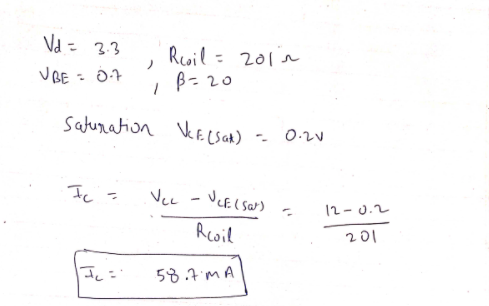 Vd = 3.3 , Rcoil = 201 Ω
VBE = 0.7 , β = 20
Saturation VCE(Sat) = 0.2V
Ic = Vcc - VCE(Sat) / Rcoil = 12-0.2 / 201
Ic = 58.7 mA